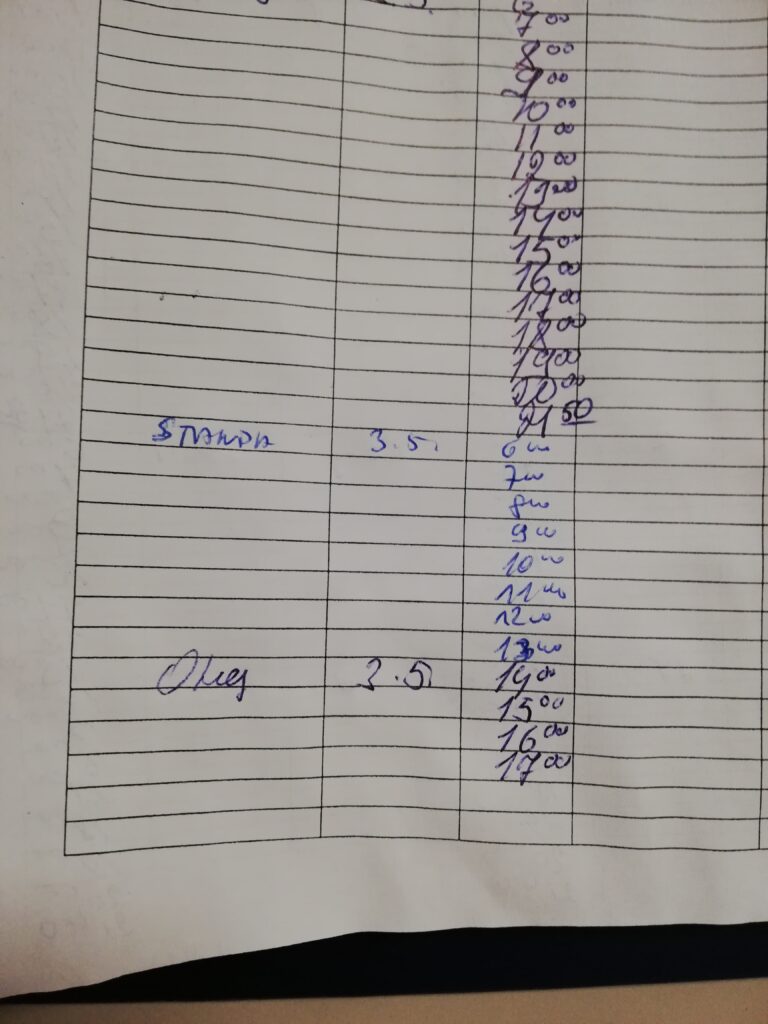 7 00
8 00
9 00
10 00
11 00
12 00
13 00
14 00
15 00
16 00
17 00
18 00
19 00
20 00
21 50
STANDA 3.5. 6 00
7 00
8 00
9 00
10 00
11 00
12 00
13 00
3.5. 14 00
15 00
16 00
17 00